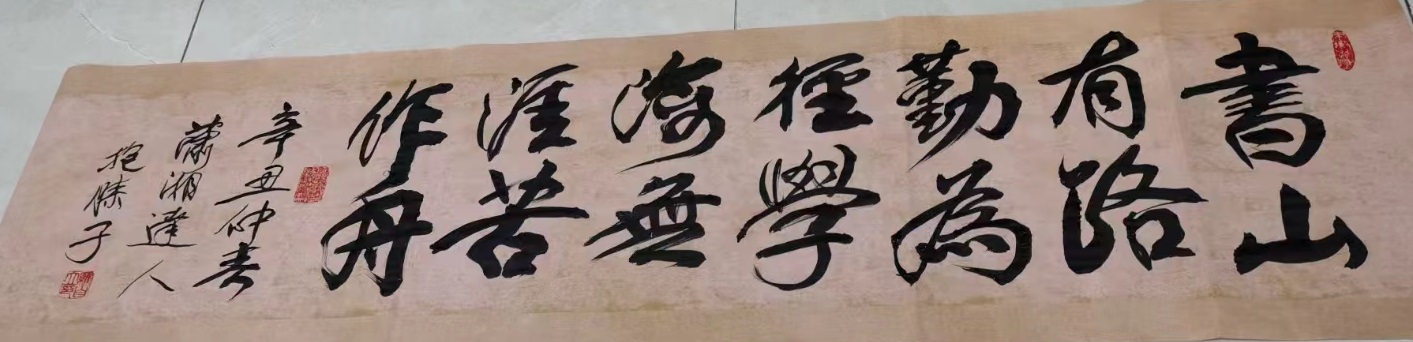 書山
有路
勤為
徑學
海無
涯苦
作舟
辛丑仲春
蕭湘達人
抱朦子